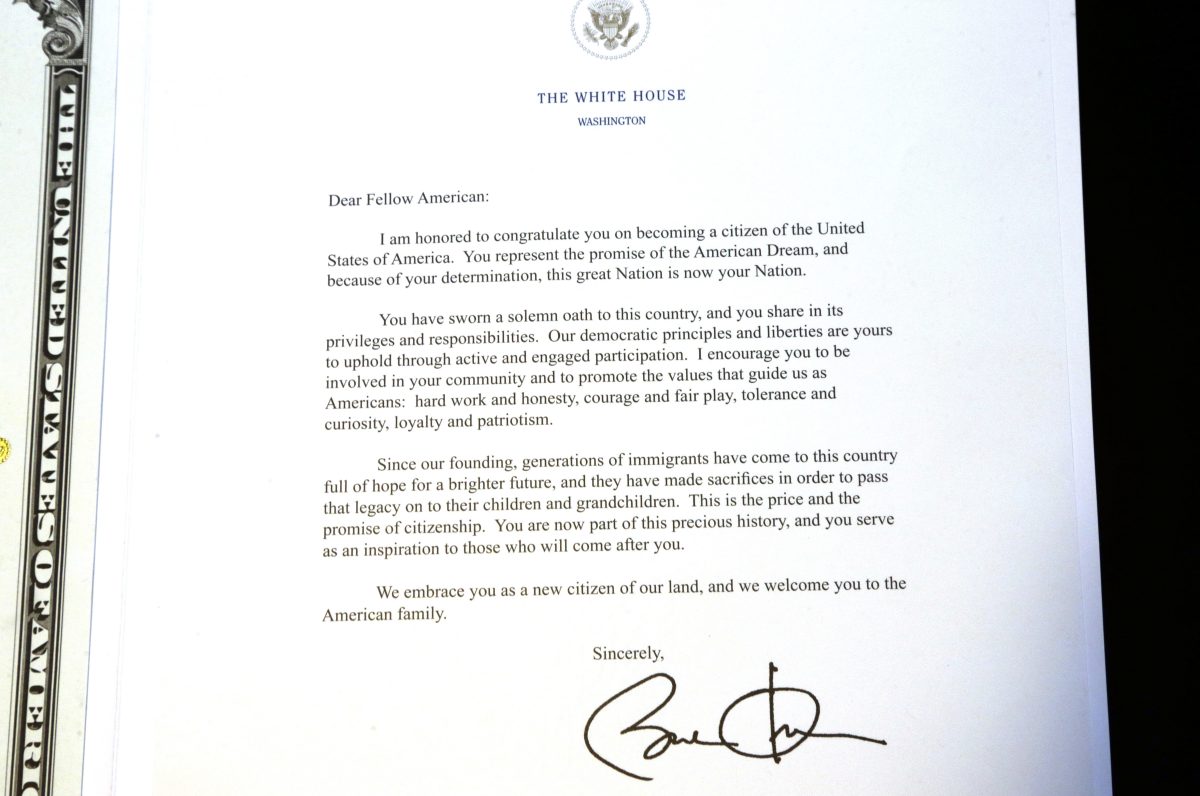 THE WHITE HOUSE
WASHINGTON
Dear Fellow American:
I am honored to congratulate you on becoming a citizen of the United
States of America. You represent the promise of the American Dream, and
because of your determination, this great Nation is now your Nation.
You have sworn a solemn oath to this country, and you share in its
privileges and responsibilities. Our democratic principles and liberties are yours
to uphold through active and engaged participation. I encourage you to be
involved in your community and to promote the values that guide us as
Americans: hard work and honesty, courage and fair play, tolerance and
curiosity, loyalty and patriotism.
Since our founding, generations of immigrants have come to this country
full of hope for a brighter future, and they have made sacrifices in order to pass
that legacy on to their children and grandchildren. This is the price and the
promise of citizenship. You are now part of this precious history, and you serve
as an inspiration to those who will come after you.
We embrace you as a new citizen of our land, and we welcome you to the
American family.
Sincerely,
THE UNITED STATES OF AMERIC